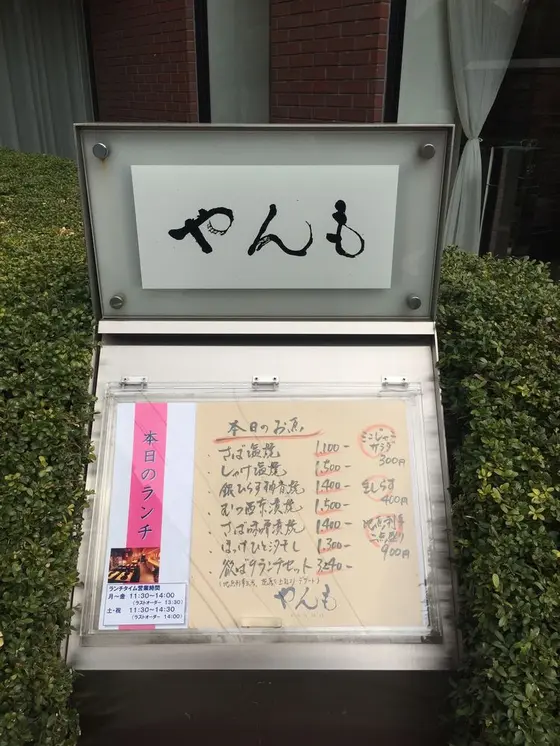 やんも
本日のランチ
ランチタイム営業時間
月～金 11:30～14:00
(ラストオーダー 13:30)
土・祝 11:30～14:30
(ラストオーダー 14:00)
本日のお魚
・さば塩焼 1.100-
・しゃけ塩焼 1.500-
・銀ひらす 焼 1.400-
・むつ西京漬焼 1.500-
・さば 焼 1.400-
・ほっけひと汐干し 1.300-
・ ランチセット 3240-
やんも
じゃこ
サラダ
300円
生しらす
400円
二点盛り
900円